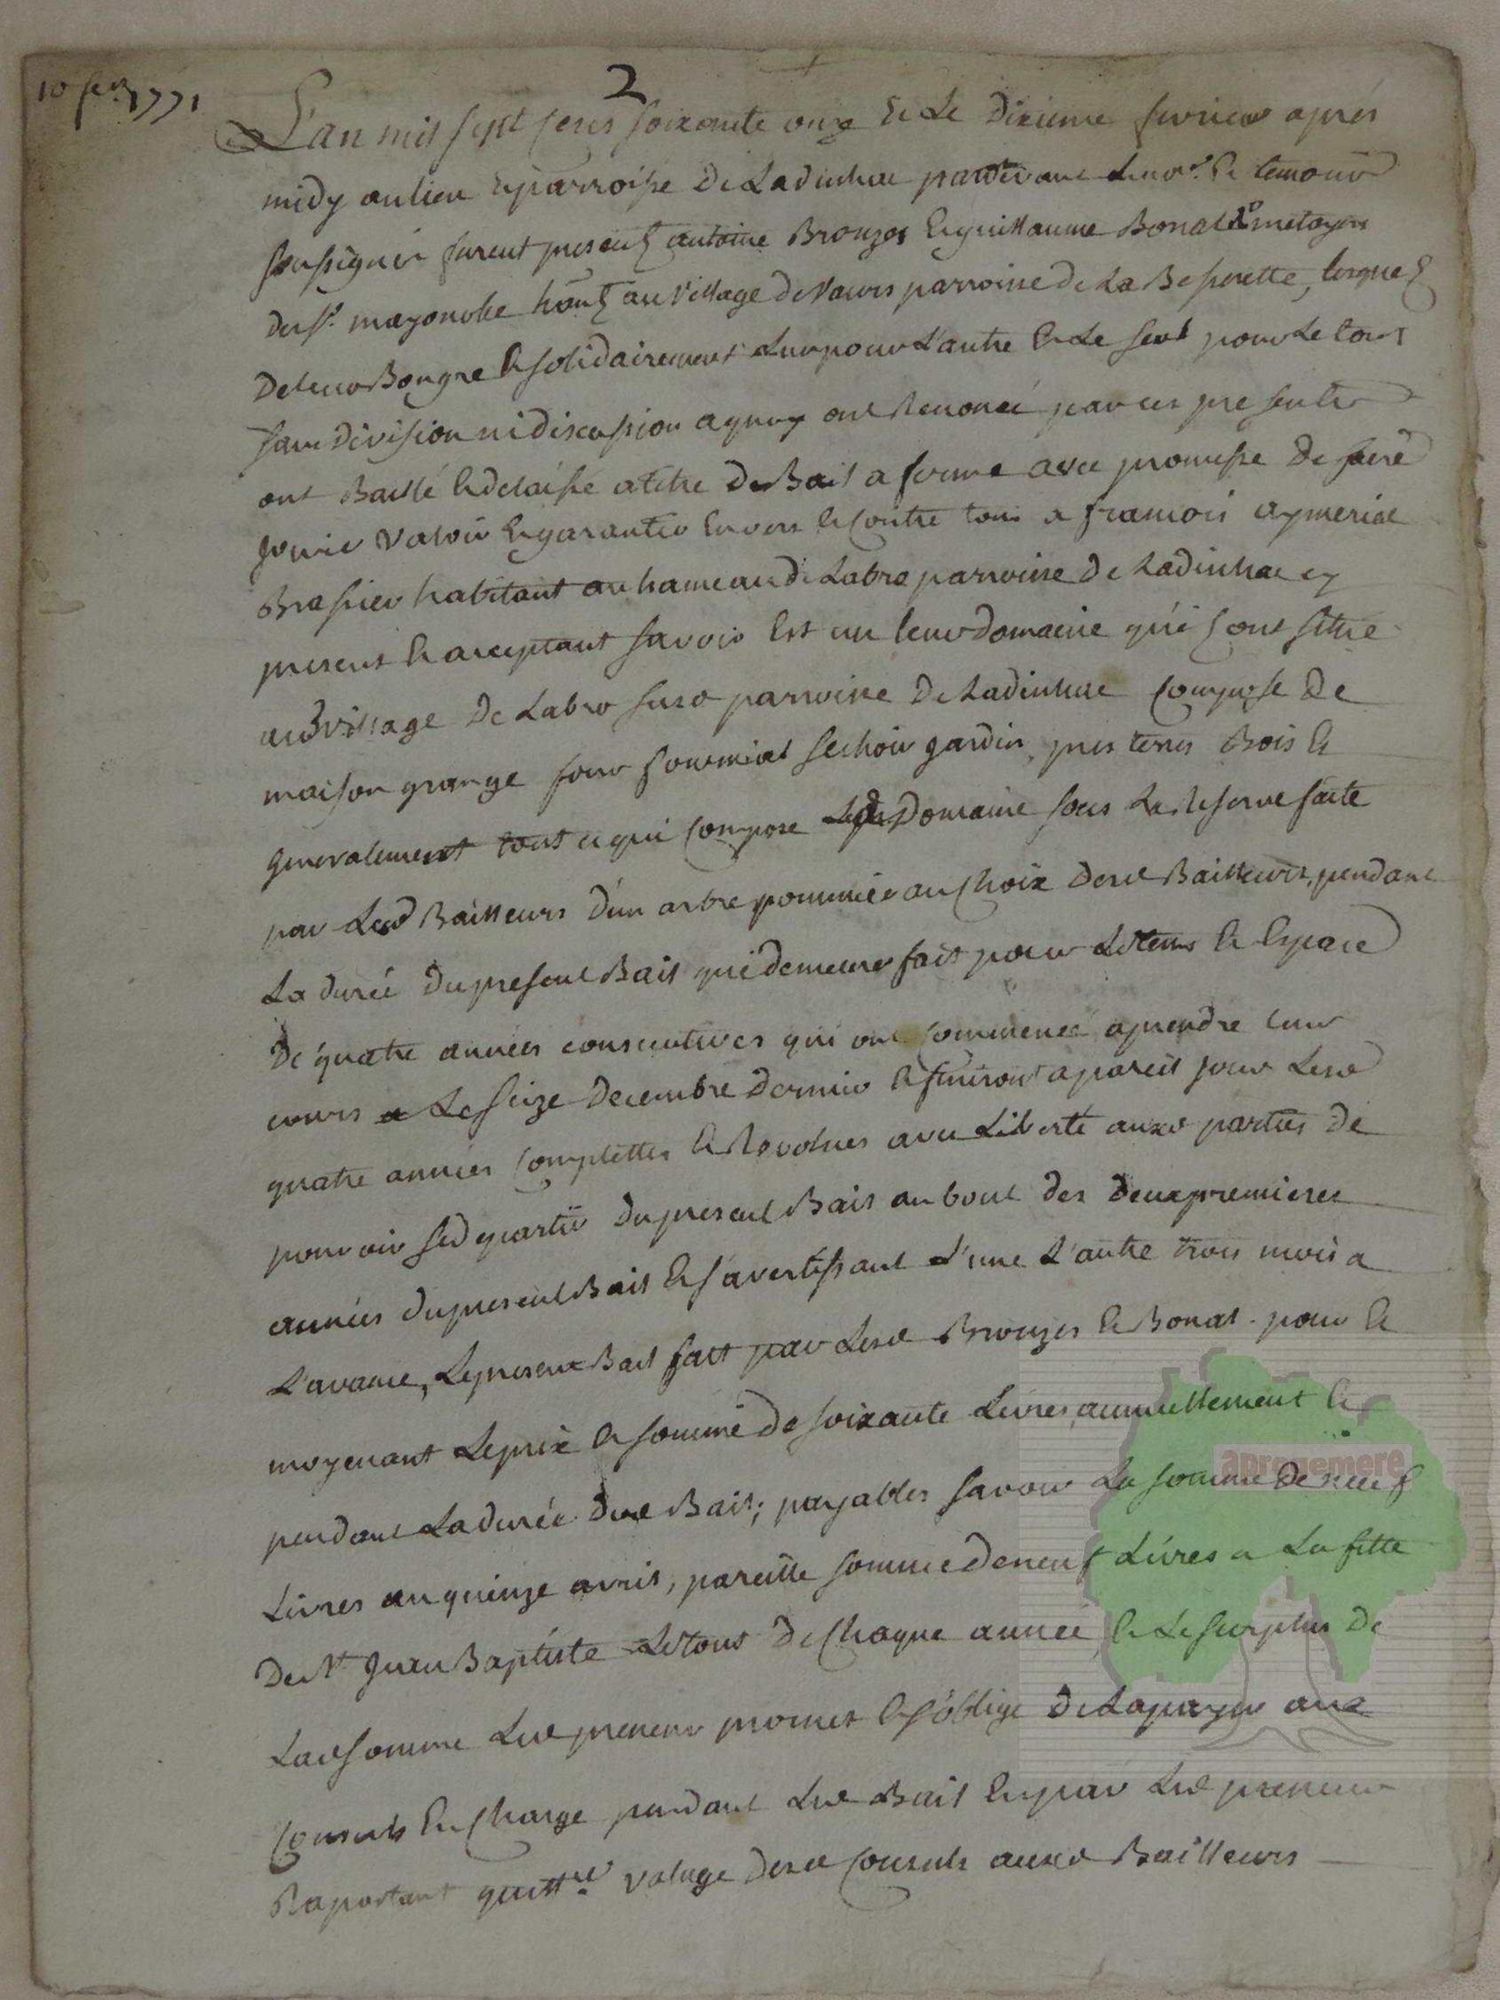 10 fer 1771
2
L'an mil sept cens soixante onze & le dixieme fevrier aprés
midy au lieu & parroisse de Ladinhac pardevant le nore & temoins
soussignés furent presents antoine Brouzes & guillaume Bonal metayers
du sr. mayonobe hants au village de Vaurs parroisse de La Besserette, lesquels
de leur Bongre & solidairement l'un pour l'autre & le seul pour le tout
sans division ni discussion a quoy ont Renoncé par ces presentes
ont Baillé & delaissé a titre de Bail a ferme avec promesse de faire
jouir valoir & garantir Envers & Contre tous a francois aymerial
Brassier habitant au hameau de Labro parroisse de Ladinhac cy
present & acceptant savoir Est un leur domaine qu'ils ont situé
aud village de Labro parroisse de Ladinhac Composé de
maison grange four sechoir jardin, pres terres Bois &
generalement tout ce qui compose led Domaine sous La Reserve faite
par Lesd Bailleurs d'un arbre pommier au Choix desd Bailleurs, pendant
La durée du present Bail qui demeure fait pour Le tems & Espace
De quatre années consecutives qui ont commencé a prendre leur
cours Le seize decembre dernier & finiront a pareil jour Lesd
quatre années complettes & Revolues avec Liberté auxd parties de
pouvoir se dequartir du present Bail au bout des deux premieres
années du present Bail & s'avertissant L'une L'autre trois mois a
L'avance, Le present Bail fait par Lesd Brouzes & Bonal pour &
moyenant Le prix & somme de soixante Livres annuellement &
pendant La durée dud Bail; payables savoir La somme de neuf
Livres au quinze avril, pareille somme de neuf Livres a La fette
de st Jean Baptiste Le tout de Chaque année, & Le surplus de
Lad somme Led preneur promet & s'oblige de La payer aux
Consuls En Charge pendant Led Bail & par Led preneur
Raportant quittce valage desd Consuls auxd Bailleurs
apronemere